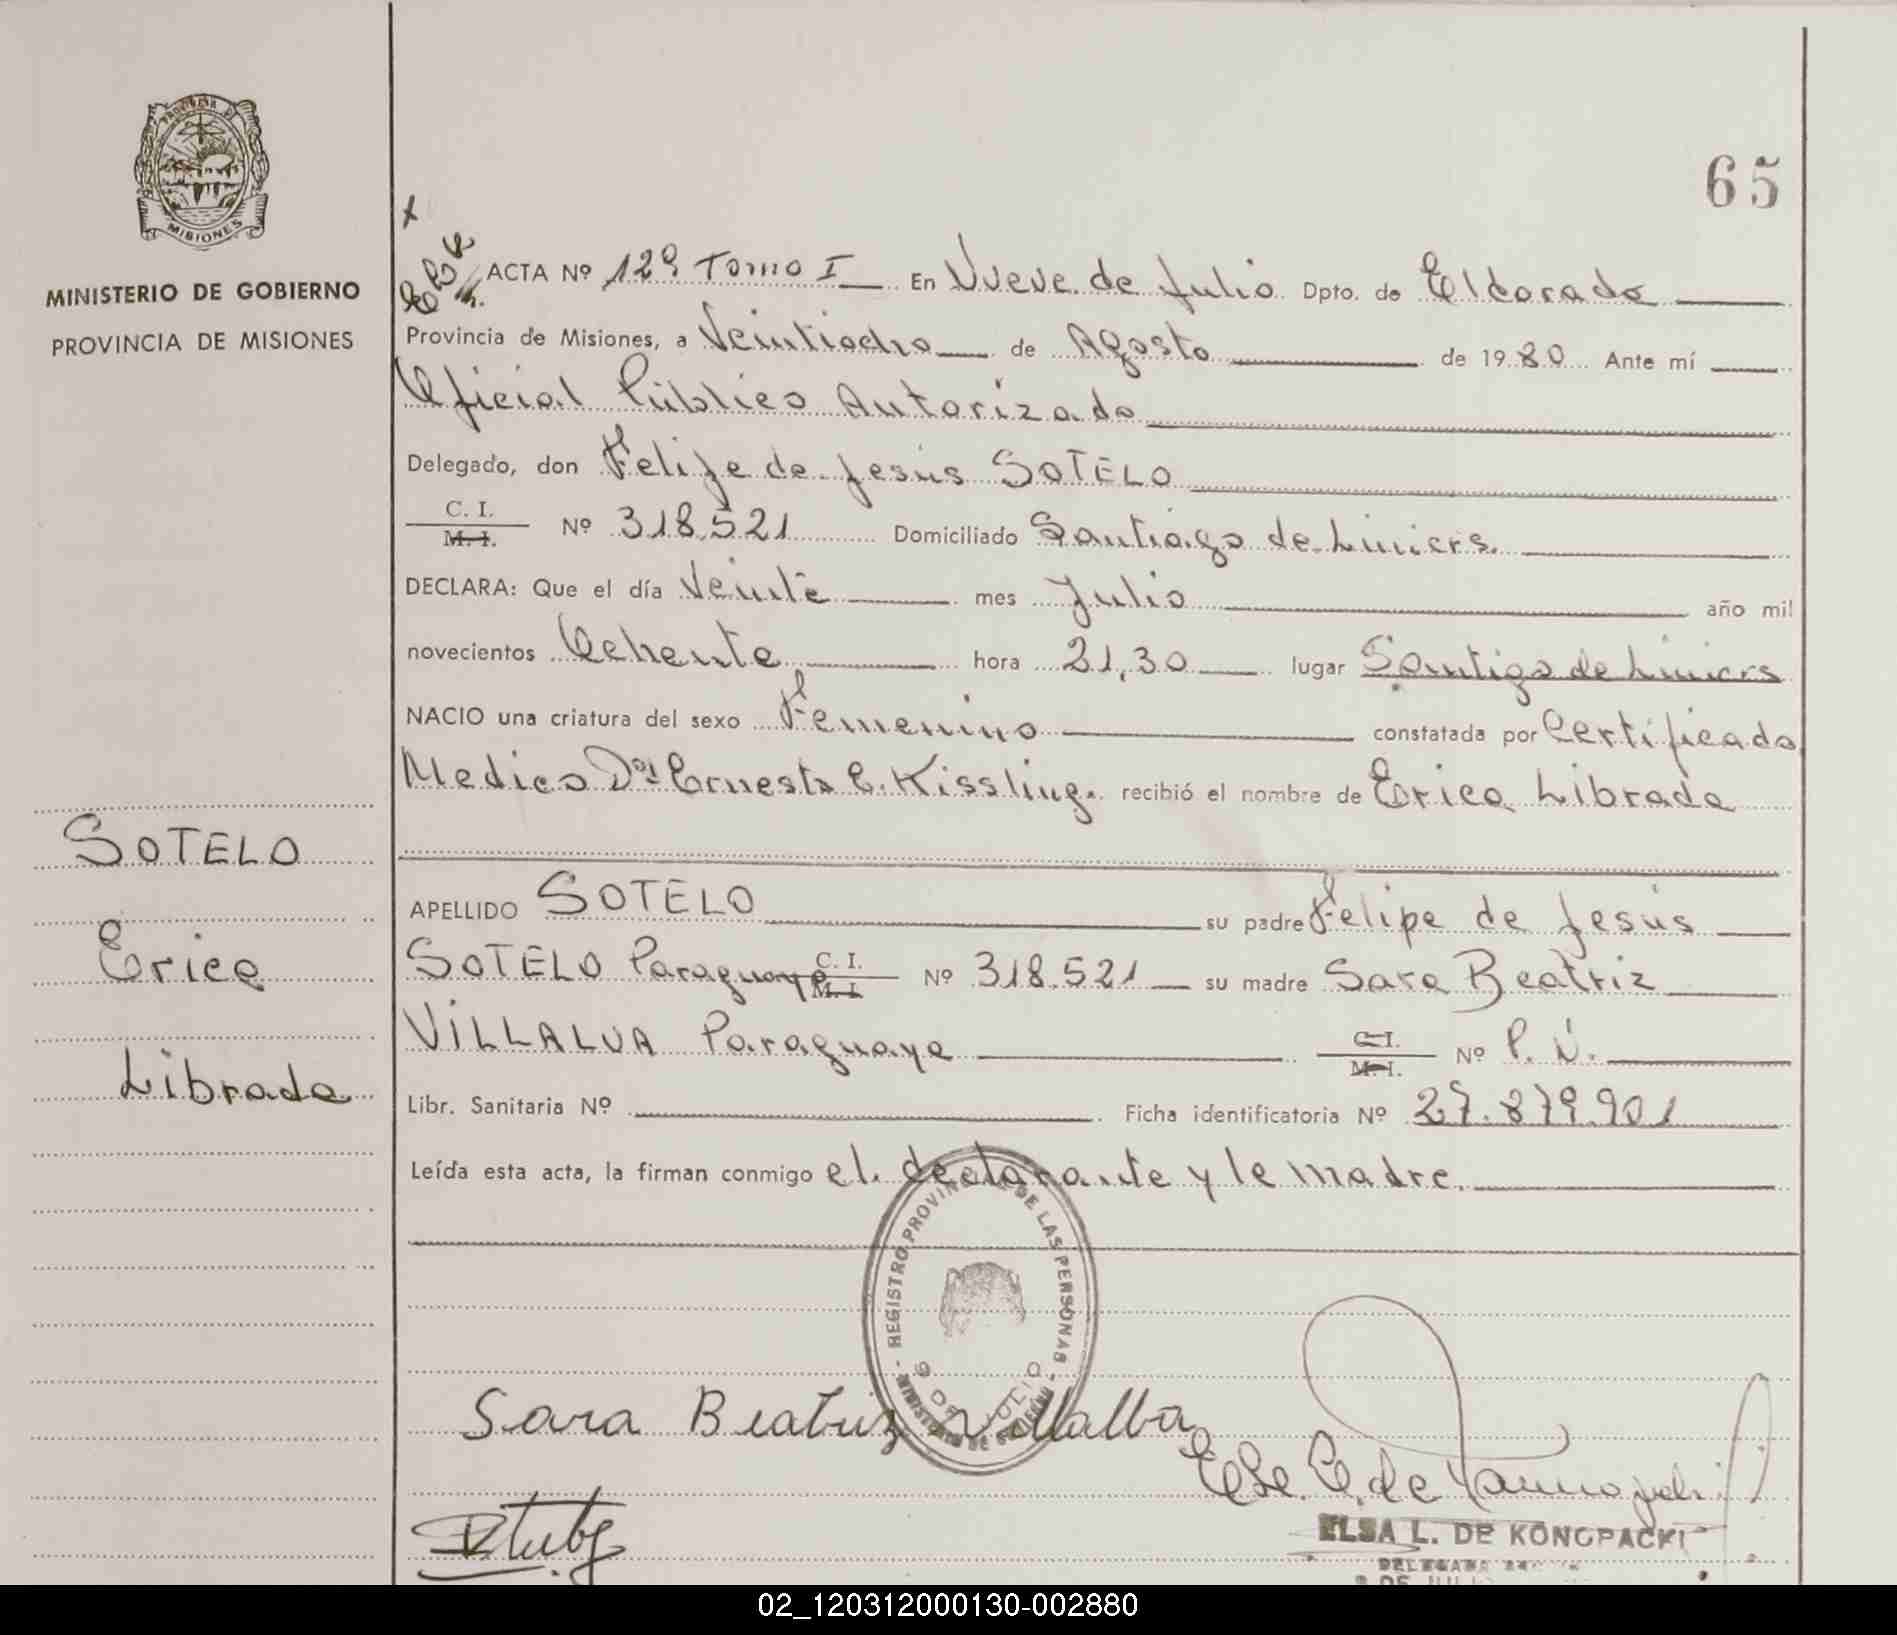 65
PROVINCIA DE
MISIONES
MINISTERIO DE GOBIERNO
PROVINCIA DE MISIONES
ACTA Nº 129 Tomo I En Nueve de Julio Dpto. de Eldorado
Provincia de Misiones, a Veintiocho de Agosto de 1980 Ante mí
Oficial Público Autorizado
Delegado, don Felipe de Jesús SOTELO
C. I.
M. I. Nº 318.521 Domiciliado Santiago de Liniers.
DECLARA: Que el día Veinte mes Julio año mil
novecientos Ochenta hora 21,30 lugar Santigo de Liniers
NACIO una criatura del sexo Femenino constatada por Certificado
Medico Dor Ernesto E. Kissling. recibió el nombre de Erica Librada
APELLIDO SOTELO su padre Felipe de Jesús
SOTELO Paraguayo C. I.
M. I. Nº 318.521 su madre Sara Beatriz
VILLALVA Paraguaya C. I.
M. I. Nº P. N.
Libr. Sanitaria Nº Ficha identificatoria Nº 27.879.901
Leída esta acta, la firman conmigo el declarante y la madre.
SOTELO
Erica
Librada
REGISTRO PROVINCIAL DE LAS PERSONAS
9 DE JULIO
MINISTERIO DE GOBIERNO
Sara Beatriz Villalba
ELSA L. DE KONOPACKI
DELEGADA
9 DE JULIO
02_120312000130-002880